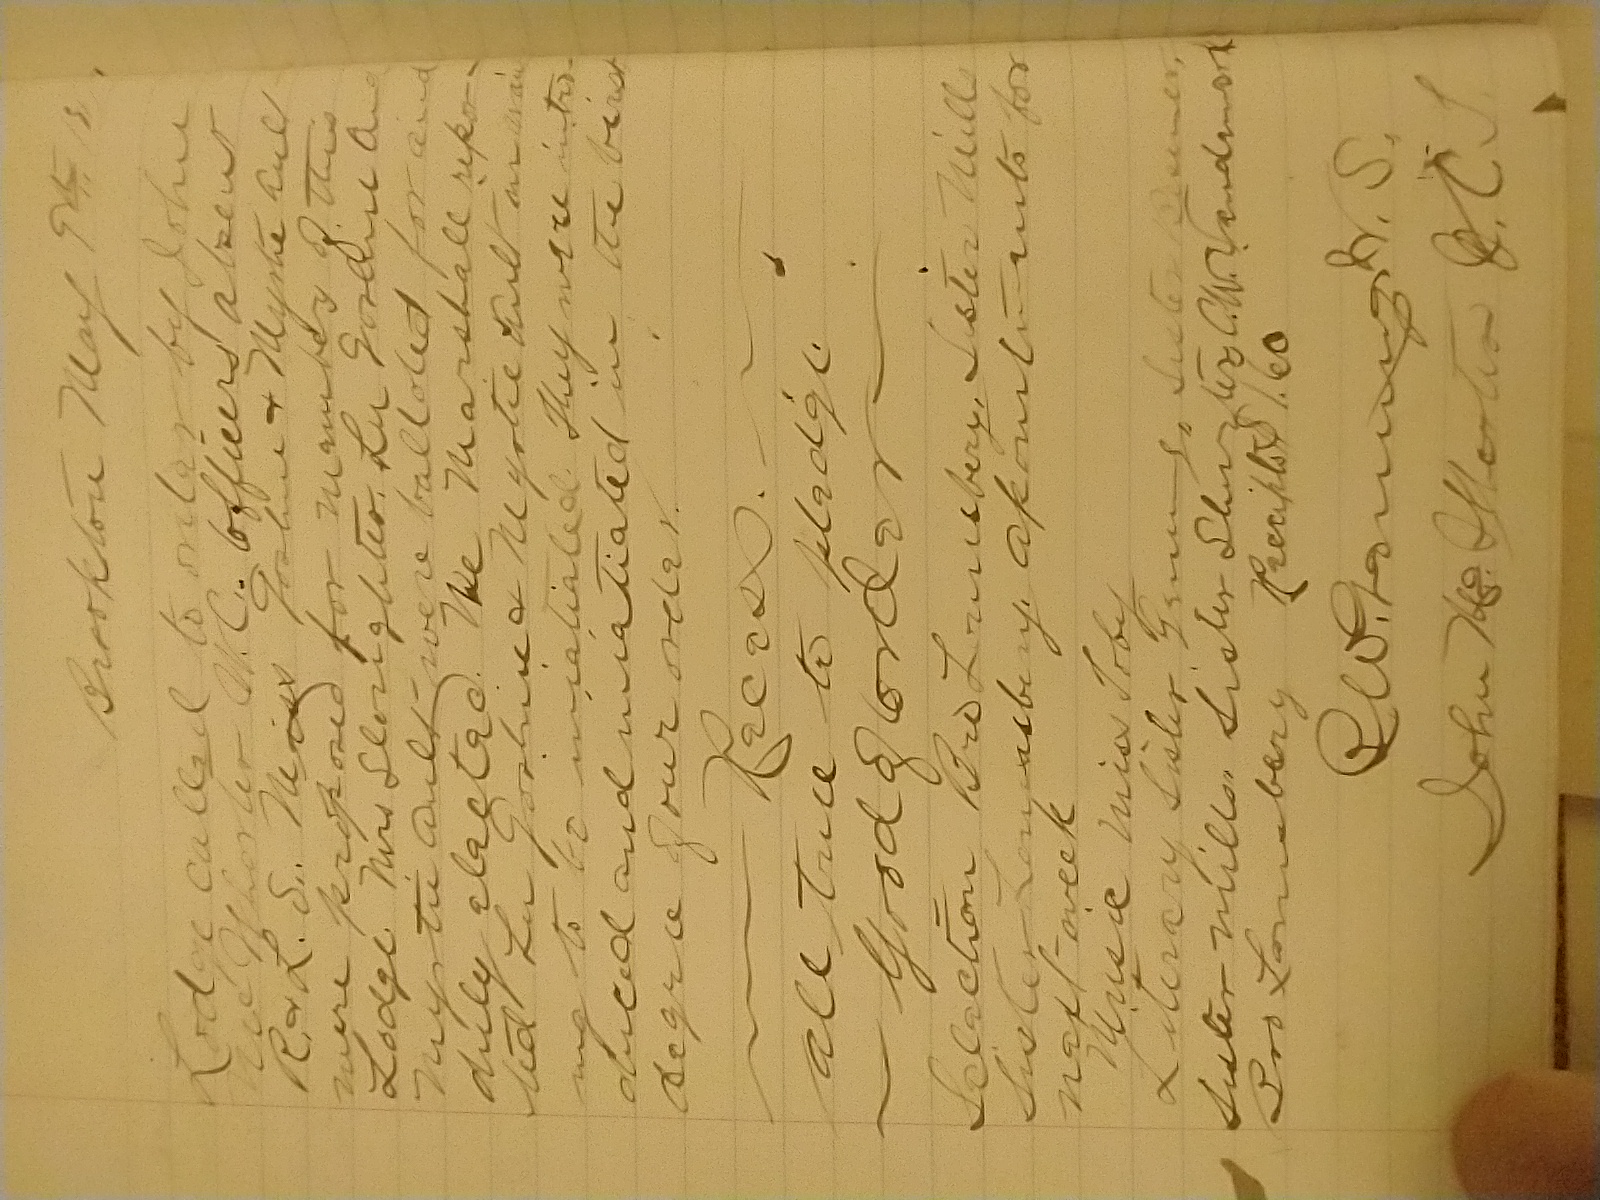 Brookton May 9th
Lodge called to order by John
Mc Whorter W.C. officers absent
R. & L. S. Miss Goshine & Mystie Ault
were proposed for members of this
Lodge. Mrs Sloughter. Lu Goshine and
Mystie Ault were balloted for and
duly elected. The Marshall repor-
ted Lu Goshine & Mystie Ault in wait
ing to be iniatiated. They were intro-
duced and iniatiated in the first
degree of our order.
Recess.
all true to pledge.
Good of order
Selection Bro Lounsbery, Sister Mills
Sister Lounsbery. apointments for
next week
Music Miss Toby
Literary Sister Genung, Sister
Sister Mills, Sister C.W. Vandemark
Bro Lounsbery Receipts $1.60
R.W. Genung W. S.
John Mc Whorter W. C. T.